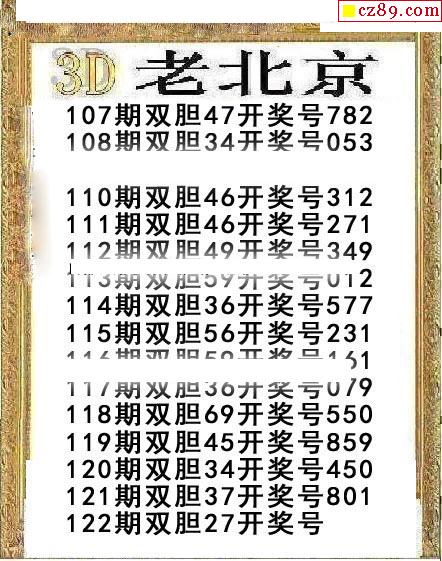 cz89.com
3D 老北京
107期双胆47开奖号782
108期双胆34开奖号053
110期双胆46开奖号312
111期双胆46开奖号271
112期双胆49开奖号349
113期双胆59开奖号012
114期双胆36开奖号577
115期双胆56开奖号231
116期双胆59开奖号161
117期双胆36开奖号079
118期双胆69开奖号550
119期双胆45开奖号859
120期双胆34开奖号450
121期双胆37开奖号801
122期双胆27开奖号